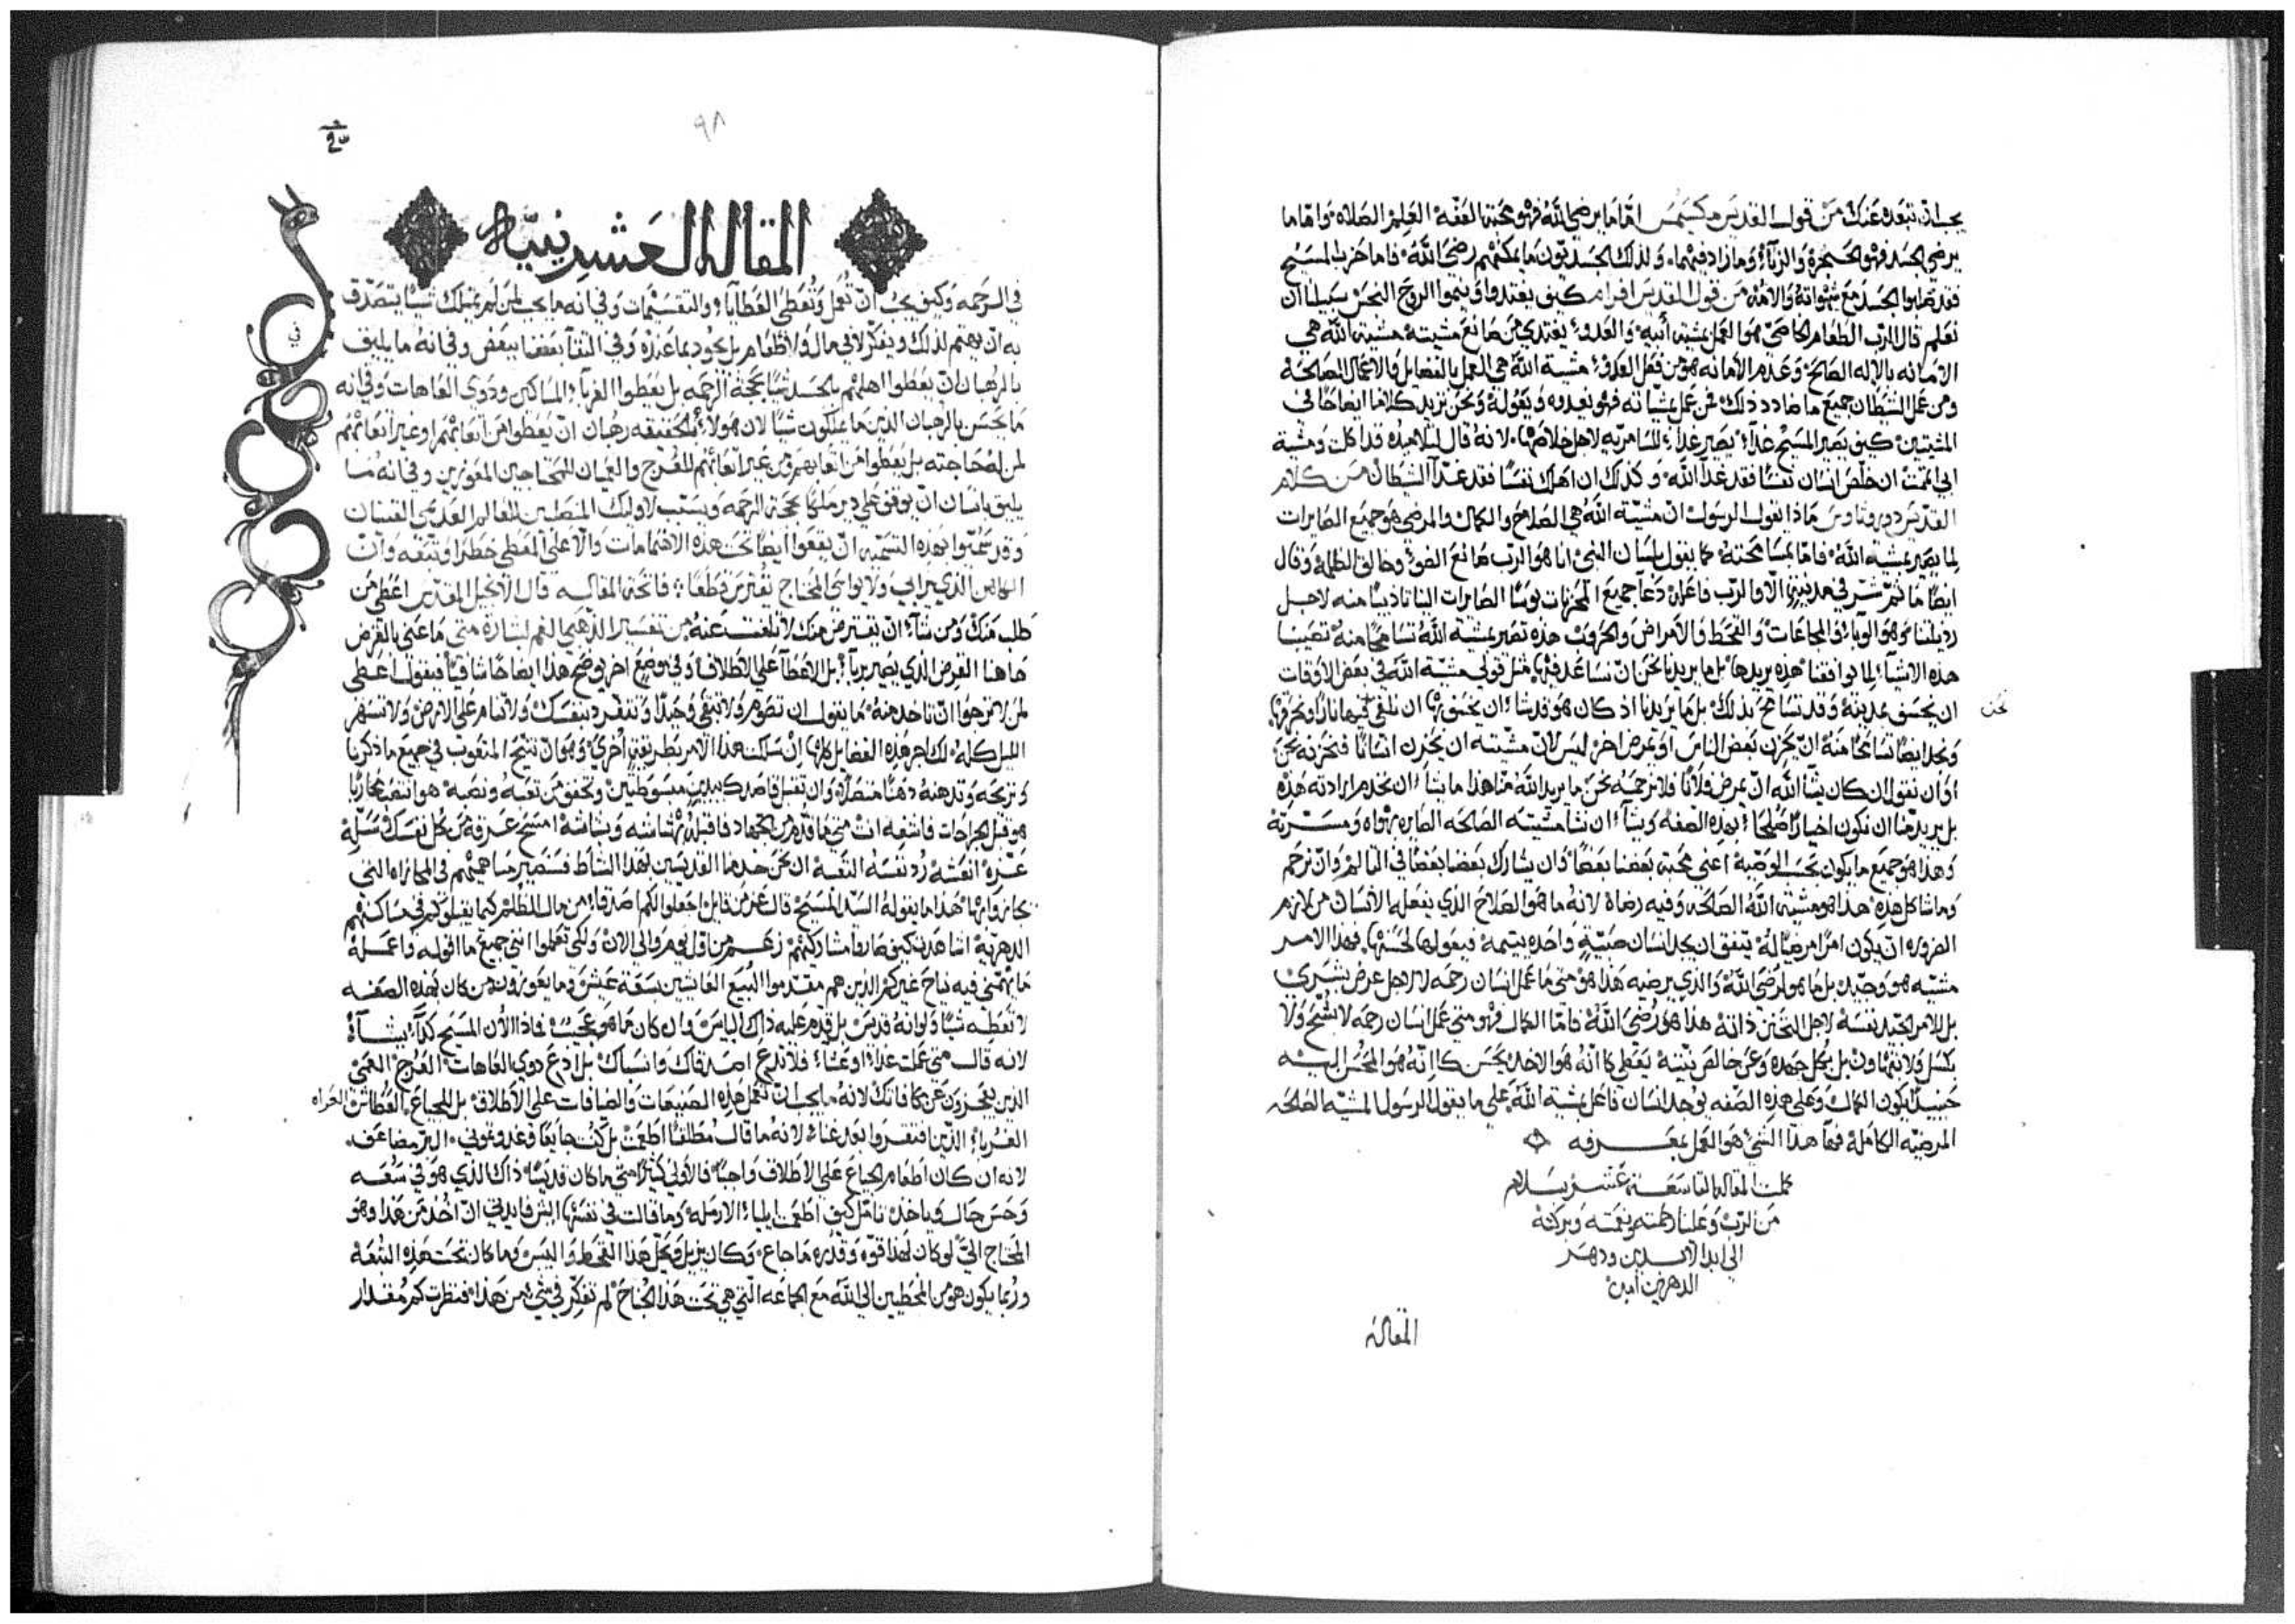 يجب ان تبعده عنك من قول القديس مكسيمس امّا ما يرضي الله فهو محبة العفّة العِلم الصلاه وامّا ما
يرضي الجسد فهو الحنجرة والزناء وما زاد فيهما ولذلك الجسديّون ما يمكنهم رضى الله فاما حزب المسيح
فقد صلبوا الجسد مع شهواته والامه من قول القديس افرام كيف يغتدوا وينموا الروح النجس سبيلنا ان
نعلم قال الرب الطعام الخاصّ هو العمل بمشية أبيه والعدو يغتدي من صانع مشيته مشية الله هي
الامانه بالاله الصالح وعدم الامانه هو من فعل العدو مشية الله هي العمل بالفضايل والاعمال الصالحة
ومن عمل الشيطان جميع ما ضادد ذلك فمن عمل بمشياته فهو يغدوه ويقوله ونحن نزيد كلامًا ايضاحًا في
المشيتين كيف يصير المسيح غداء يصير غداء للسامريه لاجل خلاصها لانه قال لتلاميده قد اكلت ومشية
ابي اتممت ان خلّص انسان نفسًا فقد غدا الله وكذلك ان اهلك نفسًا فقد غدّا الشيطان من كلام
القديس دوروثاوس ماذا نقول الرسول انّ مشيّة الله هي الصلاح والكمال والمرضي هو جميع الصايرات
لما يصير بمشية الله فامّا بمسامحته كما يقول بلسان النبي انا هو الرب صانع الضوء وخالق الظلمة وقال
ايضًا ما ثم شرّ في مدينة الّا والرب فاعله دعا جميع المحزنات بوسًا الصايرات الينا تاديبًا منه لاجل
رديلتنا وهو الوباء والمجاعات والقحط والامراض والحروب هذه تصير بمشية الله تسامحًا منه تصيبنا
هده الاشياء لما يوافقنا هذه يريدها بل ما يريدنا نحن انّ نساعد فيها مثل قولي مشية الله في بعض الاوقات
ان يخسف بمدينة وقد تسامح بذلك بل ما يريدنا اذ كان هو قد يشاء ان يخسف بها ان نلقي نحن فيها نارًا ونحرقها
ونجد ايضًا تسامحًا منه انّ يحزن بعض الناس او يمرض اخر ليس لانّ مشيّته ان يحزن انسانًا فنحزنه نحن
او ان نقول ان كان يشأ الله ان يمرض فلانًا فلا نرحمه نحن ما يريد الله منّا هذا ما يشاء ان نخدم ارادته هذه
بل يريد منّا ان نكون اخيارًا صُلحًا بهذه الصفه ويشاء ان نشا مشيته الصالحه الصايره بهواه ومسرّته
وهذا هو جميع ما يكون بحسب الوصيّة اعني محبة بعضنا بعضًا وان يشارك بعضنا بعضًا في التألم وان نرحم
وما شاكل هده هذا هو مشية الله الصالحه وفيه رضاه لانه ما هو الصلاح الذي يفعله الانسان من لازم
الضروره ان يكون امرًا مرضيًا له يتفق ان يجد انسان صبيّة واحده يتيمة فيعولها لحسنها فهذا الامر
مشيّه هو وجيّد بل ما هو لرضى الله والذي يرضيه هذا هو متي ما عمل انسان رحمه لا لاجل عرض بشري
بل للامر الجيد نفسه لاجل التحنن ذاته هذا هو رضى الله فامّا الكمال فهو متي عمل انسان رحمه لا بشح ولا
بكسل ولا بتهاون بل بكل جهده وعن خالص نيّته يفعل كانّه هو الاخد يحسن كانّه هو المُحسن اليه
حينيدٍ يكون الكمال وعلى هذه الصفه يوجد انسان فاعل مشية الله علي ما يقول الرسول المشية الصلحه
المرضيّه الكاملة فهذا الشي هو العمل بمعرفه
كملت المقاله التاسعة عشر بسلام
من الرب وعلينا رحمته ونعمته وبركته
الي ابد الابدين ودهر
الدهرين امين
المقالة
٩٨
المقالة العشرينيّة
في الرحمه وكيف يجب انّ تُعمل وتُعطى العطايا والتقسيمات وفي انه ما يجب لمن لم يمتلك شيئًا يتصدّق
به انّ يهتم لذلك ويفكّر لا في مال ولا طعام بل يجود بما عنده وفي التقآ بعضنا ببعض وفي انه ما يليق
بالرهبان انّ يعطوا اهلهم بالجسد شيًا بحجّة الرحمه بل يعطوا الغربآ والمساكين ودوي العاهات وفي انه
ما يحسن بالرهبان الذين ما يملكون شيًا لان هولاء بالحقيقه رهبان انّ يعطوا من اتعابهم او غير اتعابهم
لمن له حاجته بل يعطوا من اتعابهم ومن غير اتعابهم للعُرج والعميان للمحتاجين المعوزين وفي انه ما
يليق بانسان انّ يوقف علي دير ملكًا بحجّة الرحمه ويسبّب لاوليك المنضمين للعالم العديمي القنيان
وقد سُمّوا بهده التسميه انّ يقعوا ايضًا تحت هده الاهتمامات والّا علي المعطي خطرًا وتبعه وانّ
الذي يرابي ولا يواسي المحتاج يفترس قطعًا فاتحة المقاله قال الانجيل المقدّس اعطي من
طلب منك ومن شاء انّ يقترض منك لا تلفت عنه من تفسير الذهبي الفم لبشارة متي ما عنى بالقرض
هاهنا القرض الذي يصير بربآ بل الاعطآ علي الاطلاق وفي موضع اخر يوضح هذا ايضاحًا شافيًا فيقول اعطي
لمن لا ترجوا انّ تاخد منه
الليل كله لك اجر هذه الفضايل كلها انّ سلكت هذا الامر بطريقة اُخري وهو انّ تنتج المتعوب في جميع ما ذكرنا
وتريحه وتدهنه
هو قبل الجراحات فاشفيه انت متي ما قدم من الجهاد فاقبله بهشاشه وبشاشه امسح عرقه من كل نفسك سلّه
عزه انعشه رُد نفسه التعبه ان نحن خدمنا القديسين بهذا النشاط فسنصير مساهميهم في المجازاه التي
يجازوا بها هذا ما يقوله السيّد المسيح قال عز من قايل اجعلوا لكم اصدقاء من مال الظلم كيما يقبلوكم في مساكنهم
الدهريّة اشاهدت كيف صاروا مشاركيهم زعم من قال لهم والي الان ولكي تعلموا انني جميع ما اقوله واعمله
ما يهمّني فيه نياح غيركم الذين هم مقدموا البيع العايشين بسعة عيش وما يعوزون من كان بهده الصفه
لا تعطه شيًا ولو انه قديس بل قدّم عليه ذاك البايس وان كان ما هو عجيب لماذا لان المسيح كدا يشآءُ
لانه قال متي عملت غداء او عشاء فلا تدع اصدقاك وانساك بل ادع دوي العاهات العُرج العُمي
الذين يعجزون عن مكافاتك لانه ما يجب انّ تعمل هذه الصنيعات والضيافات علي الاطلاق بل للجياع العطاش العراه
الغرباء الذين افتقروا بعد غناء لانه ما قال مطلقًا اطعمت بل كنت جايعًا فغدوتموني البرّ مضاعف
لانه ان كان اطعام الجياع علي الاطلاق واجبًا فالاولي كثيرًا متي ما كان قديسًا ذاك الذي هو في سعه
وحسن حال وياخد تامّل كيف اطعمت ايلياء الارملة وما قالت في نفسها ايش فايدتي انّ اُخذ من هذا وهو
المحتاج اليّ لو كان لهذا قوّه وقدره ما جاع وكان يزيل ويحلّ هذا القحط واليبس وما كان تحت هذه التبعة
وربّما يكون هو من المخطيين الي الله مع الجماعه التي هي تحت هذا الجناح لم تفكّر في شيء من هذا فنظرت كم مُقدار